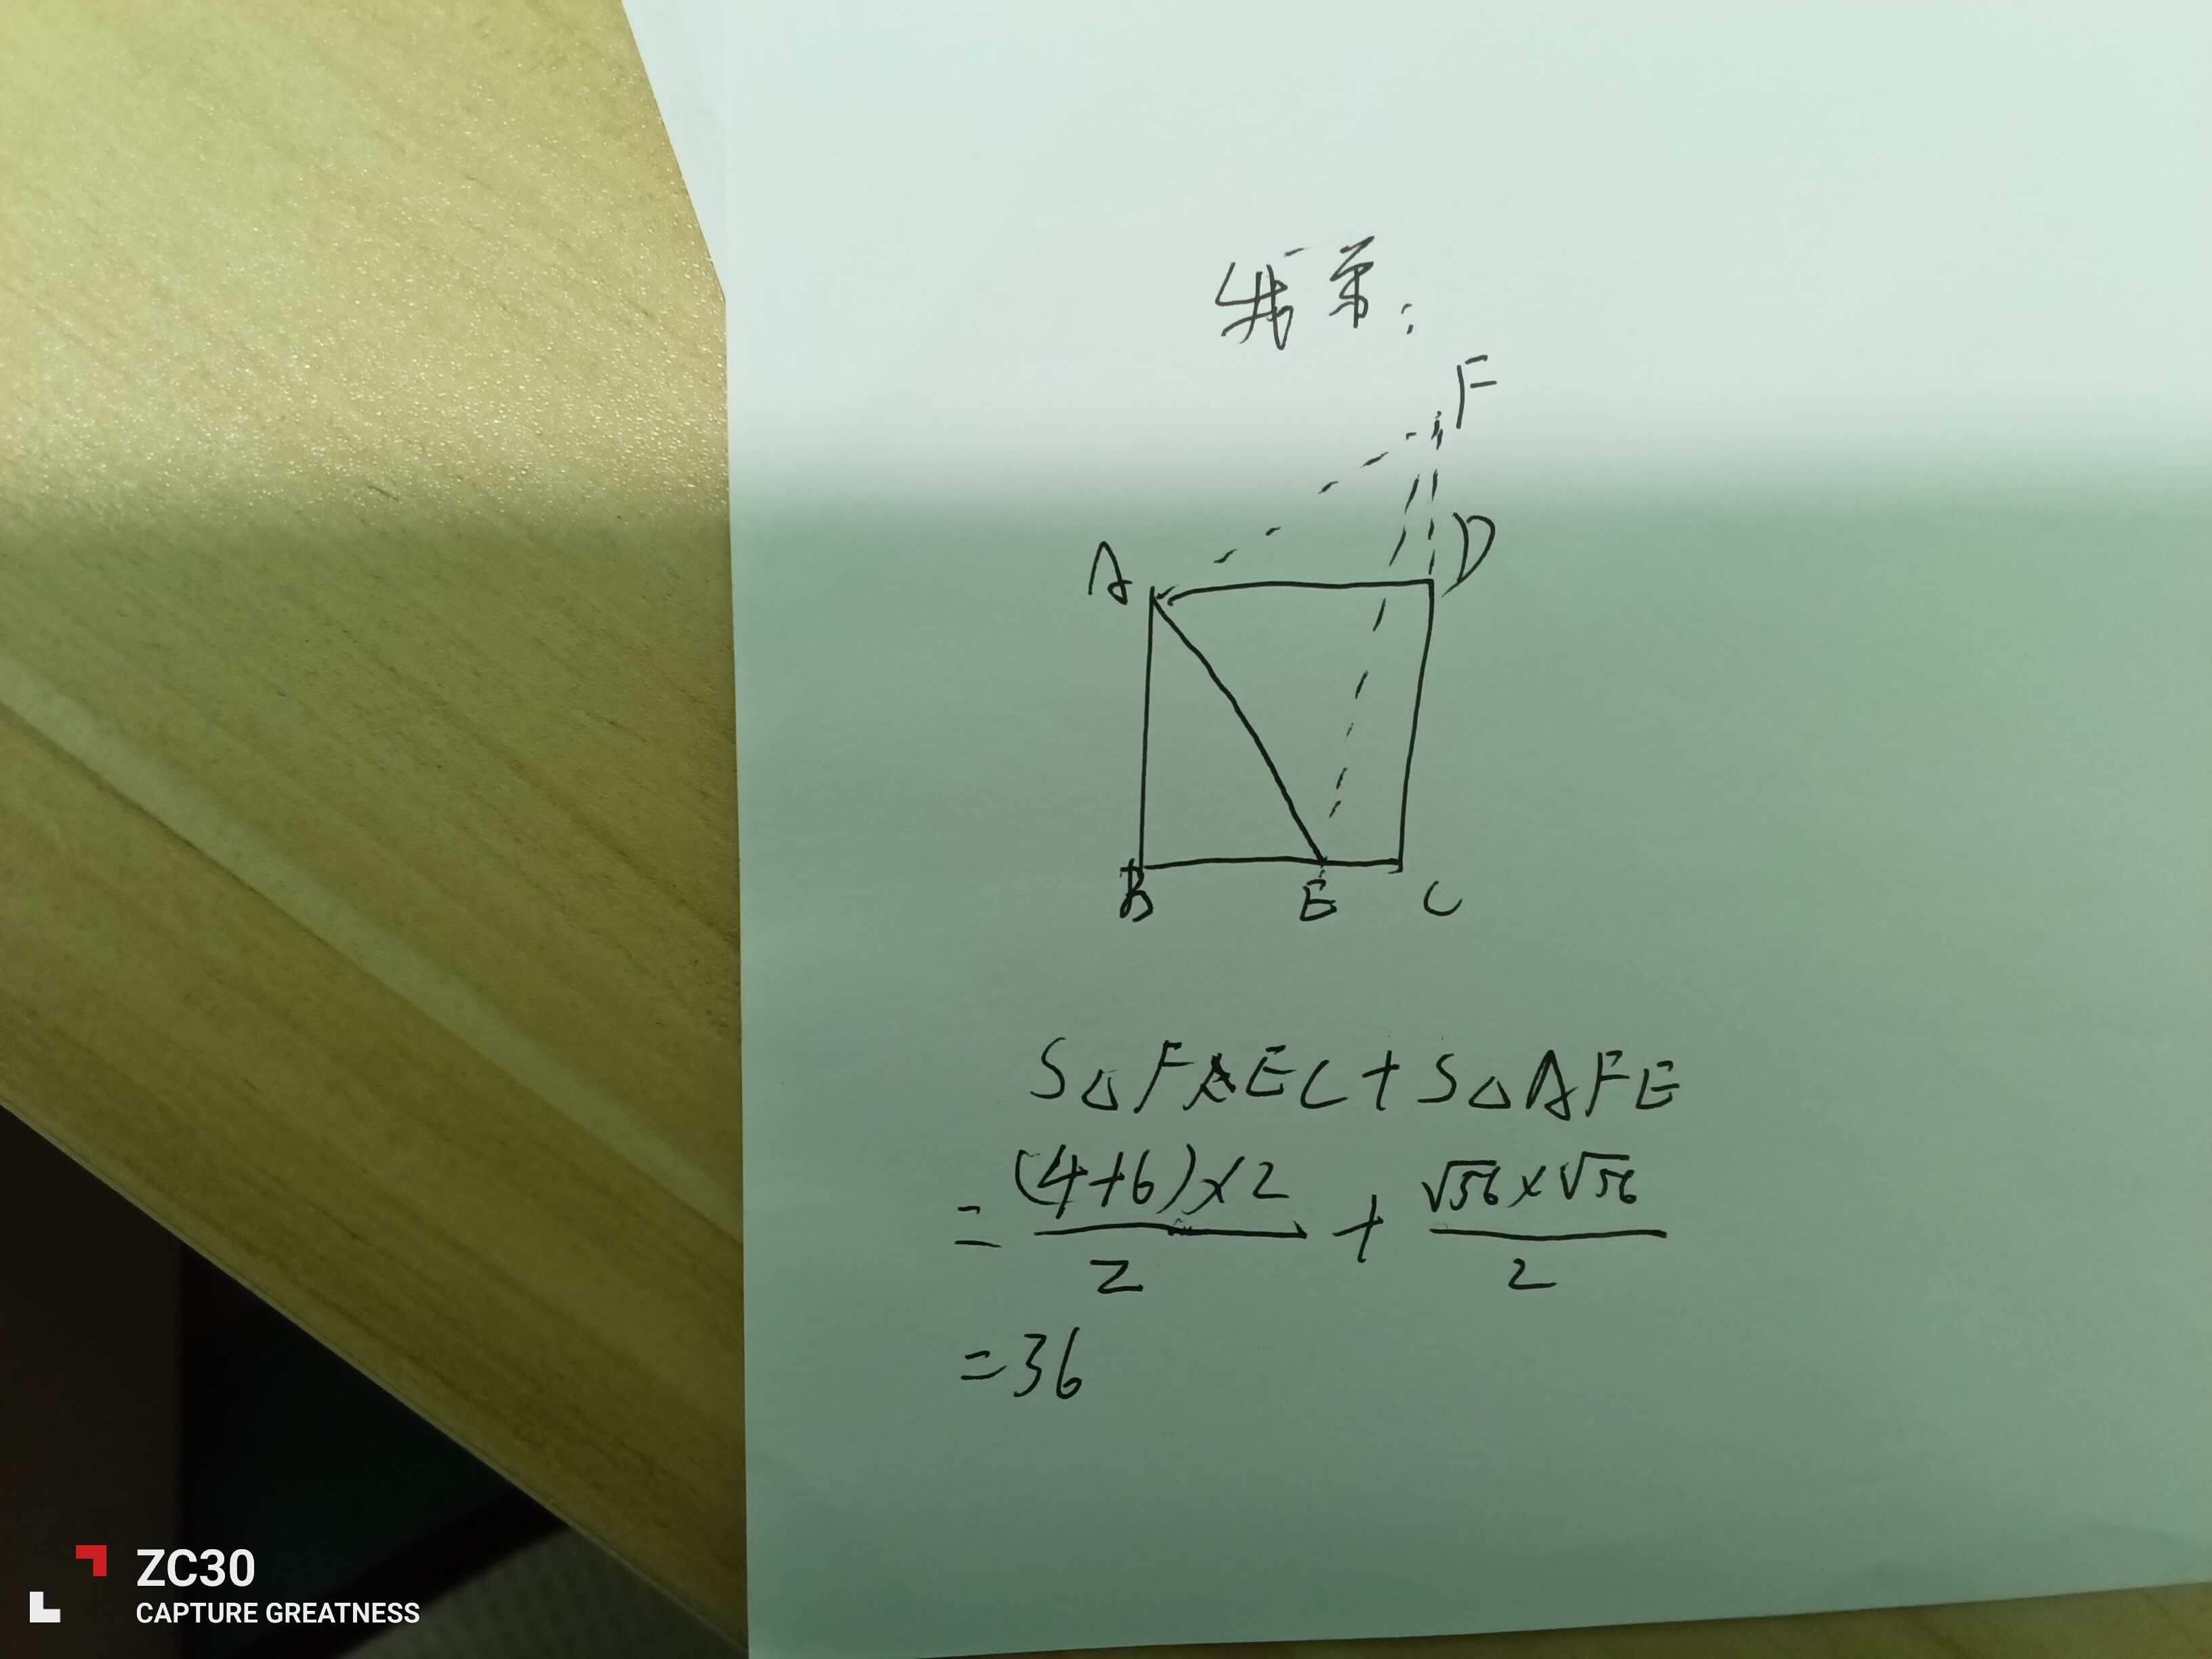 我算:
F
A D
B E C
S△FEC+S△AFE
=(4+6)×2/2+√56×√56/2
=36
ZC30
CAPTURE GREATNESS